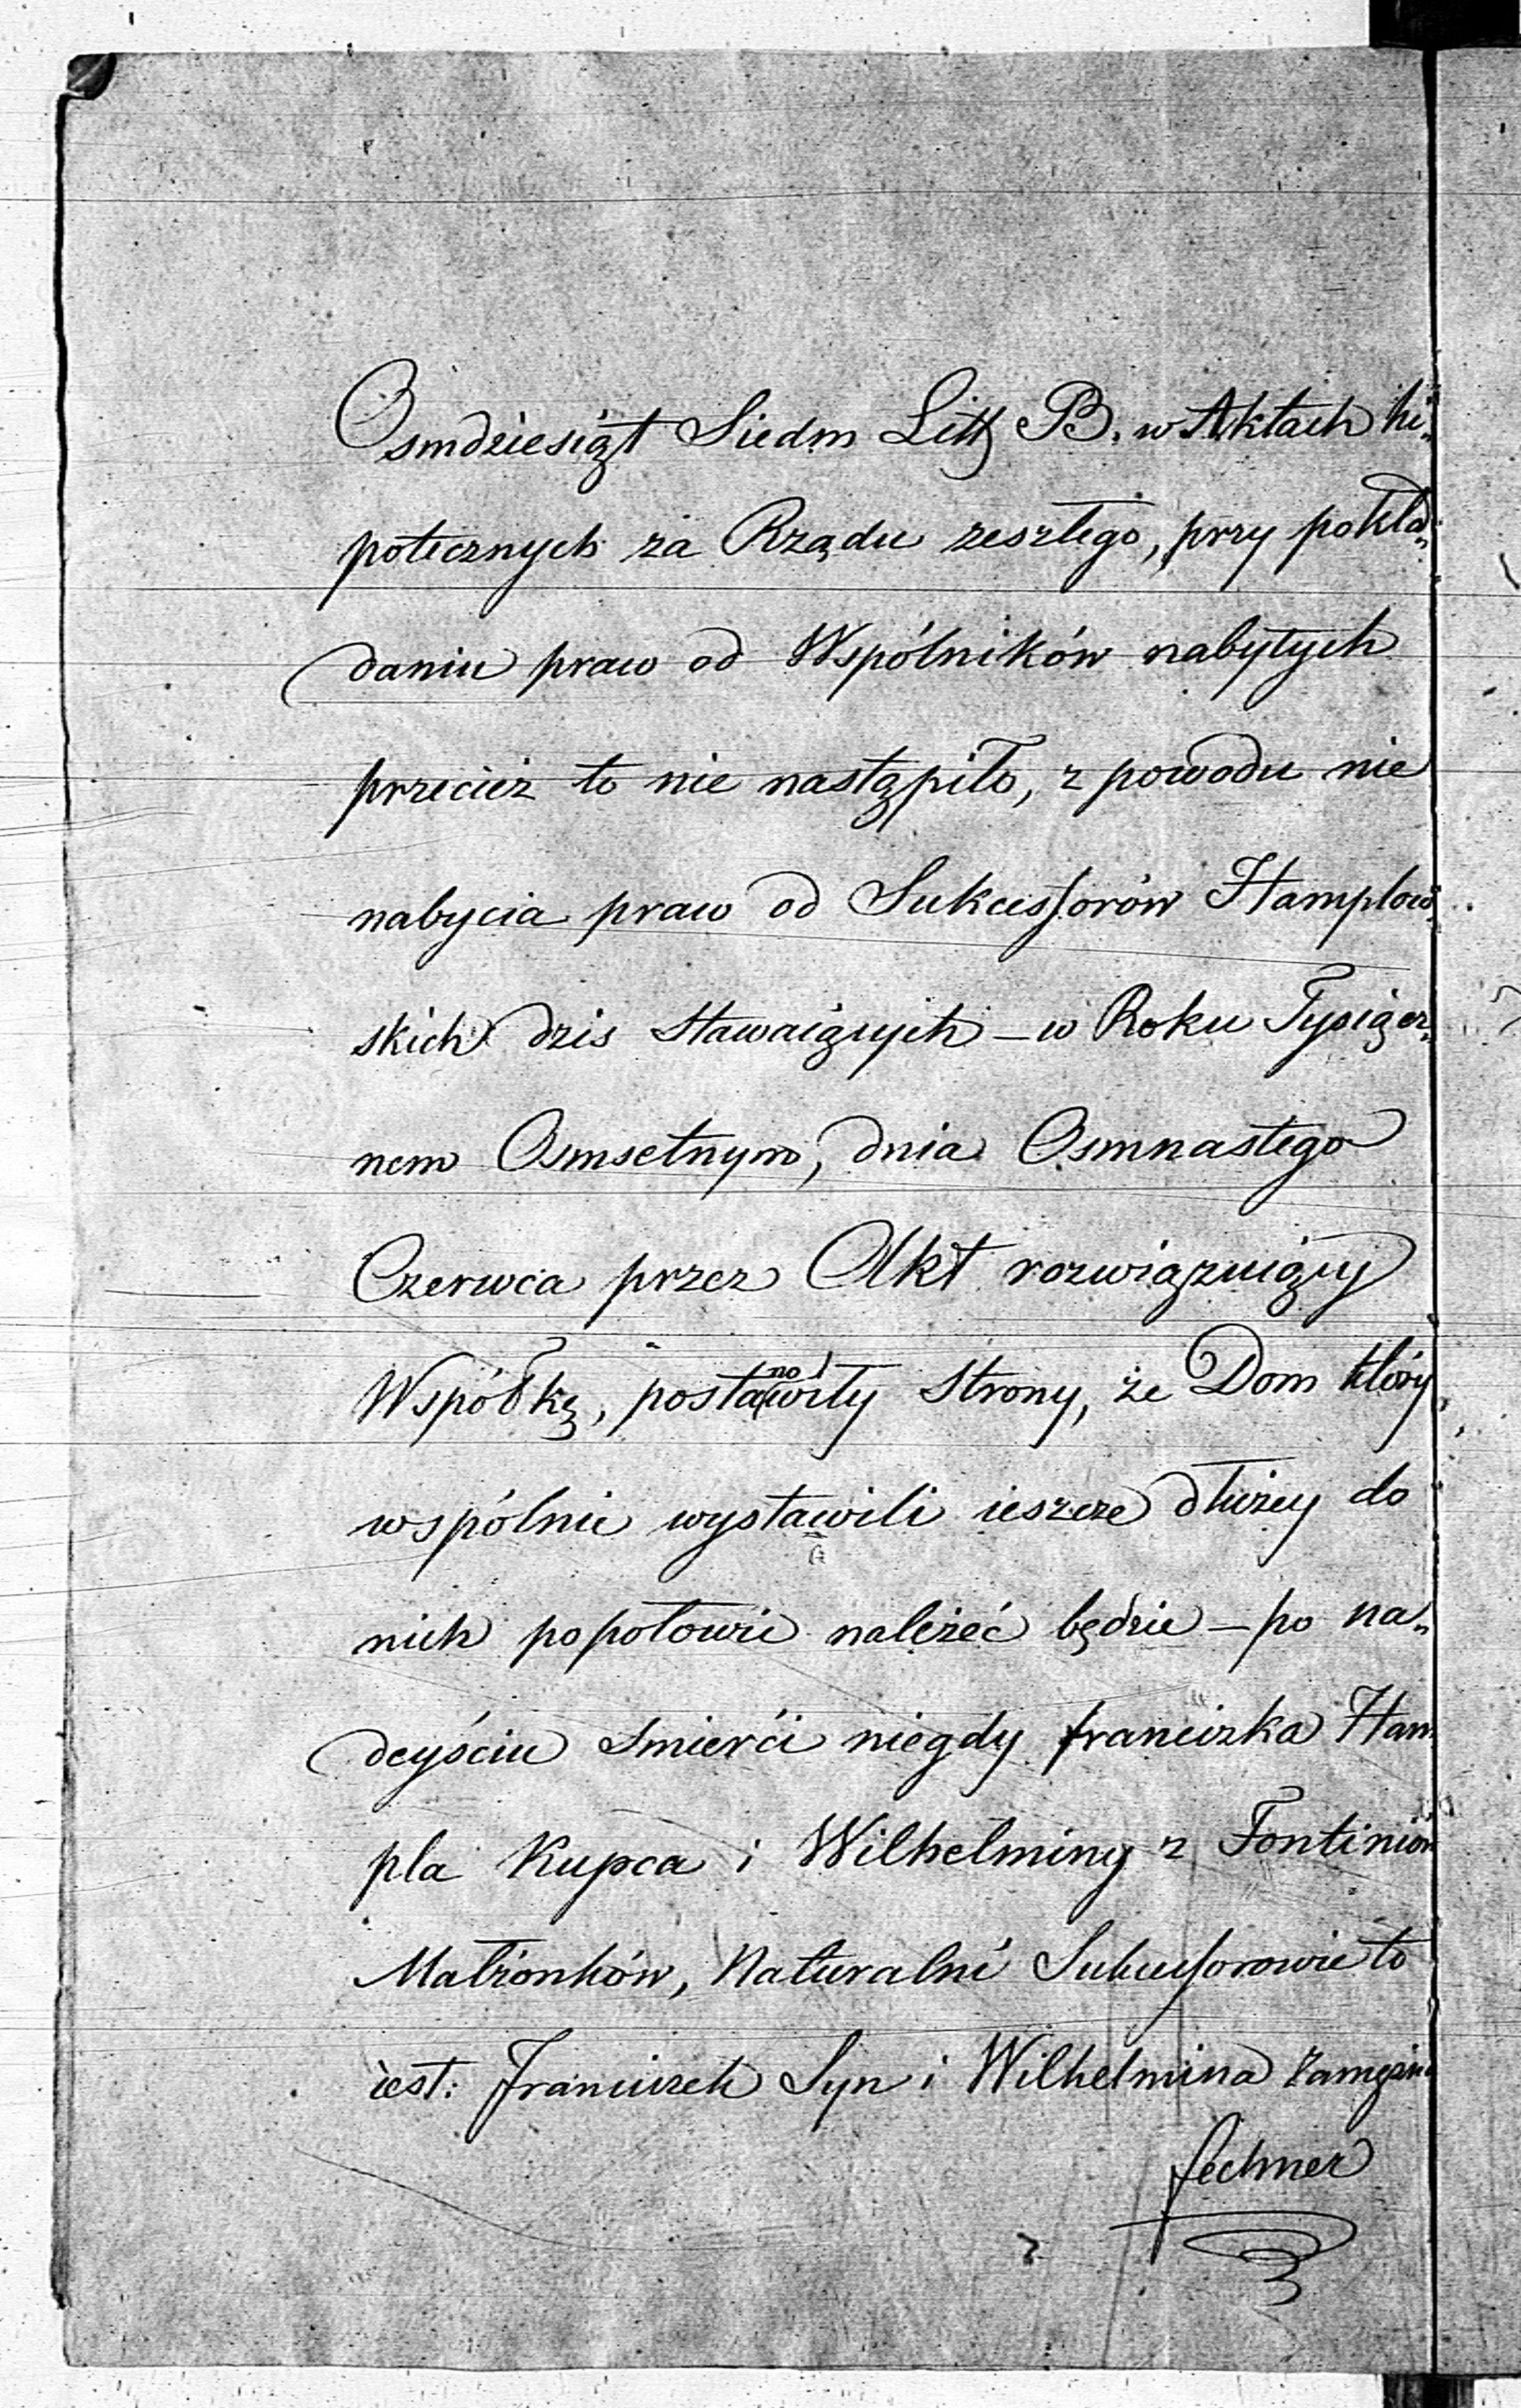 Osmdziesiąt Siedm Litt B. w Aktach hi„
potecznych za Rządu zeszłego, przy pokła„
daniu praw od Wspólników nabytych
przecież to nie nastąpiło, z powodu nie
nabycia praw od Sukcessorów Hamplow„
skich dzis stawaiących – w Roku Tysiącz„
nem Osmsetnym, dnia Osmnastego
Czerwca przez Akt rozwiązuiący
Wspólkę, postanowiły Strony, że Dom który
wspólnie wystawili ieszcze dłużey do
nich popołowie należeć będzie – po na„
deyściu Smierći niegdy franciszka Ham
pla Kupca i Wilhelminy z Fontiniów
Małżonków, Naturalni Sukcessorowie to
iest: Franciszek Syn i Wilhelmina zamężna
fechner